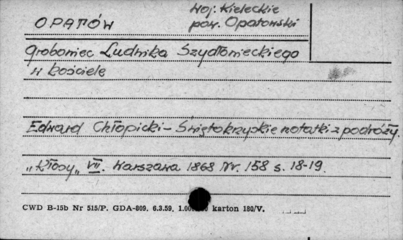 Woj: Kieleckie
OPATÓW
pow. Opatowski
Grobowiec Ludwika Szydłowieckiego
w kościele
Edward Chłopicki - Świętokrzyskie notatki z podróży.
"Kłosy" VII. Warszawa 1868 Nr. 158 s. 18-19.
CWD B-15b Nr 515/P. GDA-809. 6.3.59, 1.00 karton 180/V.